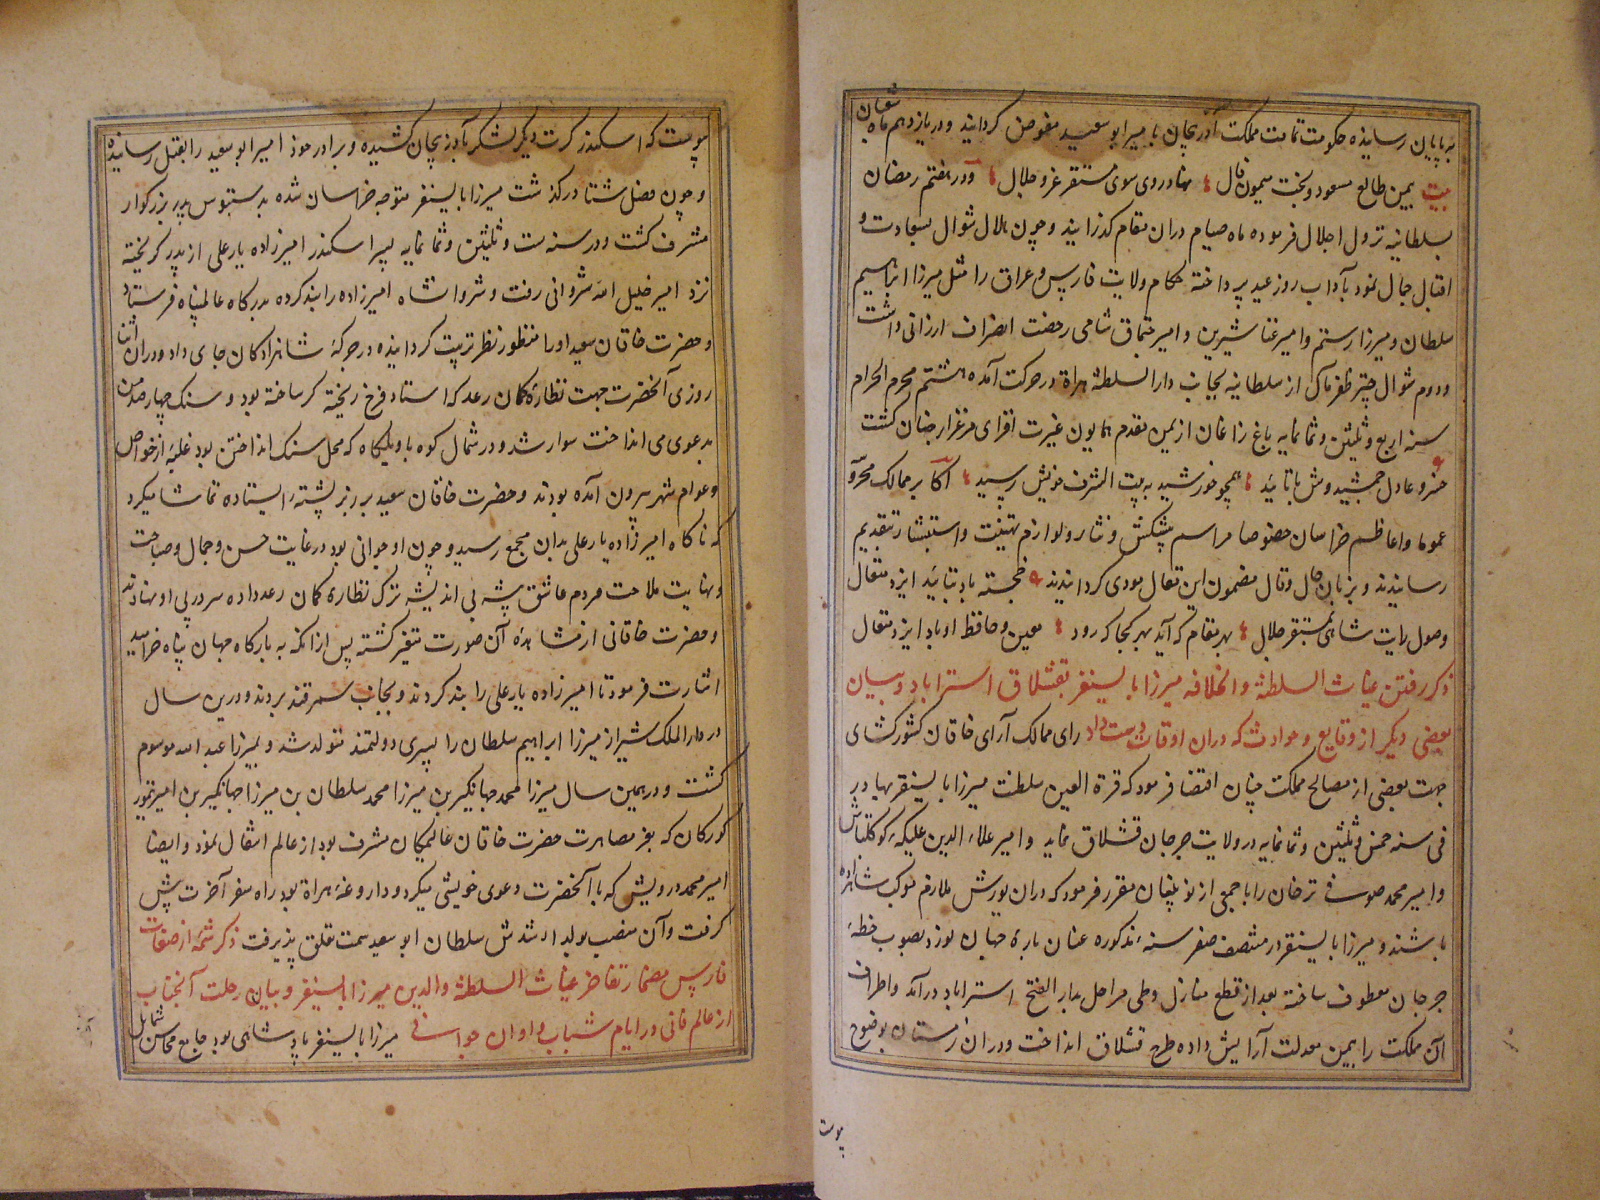 به پایان رسانیده حکومت تمامت مملکت آذربیجان بامیر ابو سعید مفوض کردانید و در یازدهم ماه شعبان
بیت بیمن طالع مسعود و بخت میمون فال نهاد روی سوی مستقر عز و جلال و در هفتم رمضان
بسلطانیه نزول اجلال فرموده ماه صیام دران مقام کذرانید و چون هلال شوال بسعادت و
اقبال جمال نمود بآداب روز عید پرداخته حکام ولایت فارس و عراق را مثل میرزا ابراهیم
سلطان و میرزا رستم و امیر غنا شیرین و امیر چقماق شامی رخصت انصراف ارزانی داشت
و دوم شوال چتر ظفر مآل از سلطانیه بجانب دار السلطنة هراة در حرکت آمده هشتم محرم الحرام
سنه اربع و ثلثین و ثمانمایه باغ زاغان از یمن مقدم همایون غیرت افزای مرغزار جنان کشت
خسرو عادل جمشیدوش باتائید همچو خورشید به بیت الشرف خویش رسید اکابر ممالک محروسه
عموما و اعاظم خراسان خصوصا مراسم پیشکش و نثار و لوازم تهنیت و استبشار بتقدیم
رسانیدند و بزبان حال و قال مضمون این مقال مودی کردانیدند خجسته باد بتائید ایزد متعال
وصول رایت شاهی بمستقر جلال بهر مقام که آید بهر کجا که رود معین و حافظ او باد ایزد متعال
ذکر رفتن غیاث السلطنة و الخلافه میرزا بایسنغر بقشلاق استراباد و بیان
بعضی دیکر از وقایع و حوادث که دران اوقات دست داد رای ممالک آرای خاقان کشورکشای
جهت بعضی از مصالح مملکت چنان اقتضا فرمود که قرة العین سلطنت میرزا بایسنغر بهادر
فی سنه خمس و ثلثین و ثمانمایه در ولایت جرجان قشلاق نماید و امیر علاء الدین علیکه کوکلتاش
و امیر محمد صوفی ترخان را با جمعی از نوئینان مقرر فرمود که دران یورش ملازم موکب شاهزاده
باشند و میرزا بایسنغر در منتصف صفر سنه مذکوره عنان باره جهان نورد بصوب خطهٔ
جرجان معطوف ساخته بعد از قطع منازل و طی مراحل بدار الفتح استراباد درآمد و اطراف
آن مملکت را بیمن معدلت آرایش داده طرح قشلاق انداخت و دران زمستان بوضوح
پیوست
پیوست که اسکندر کرت دیکر لشکر بآذربیجان کشیده و برادر خود امیر ابو سعید را بقتل رسانیده
و چون فصل شتا در کذشت میرزا بایسنغر متوجه خراسان شده بدستبوس پدر بزرکوار
مشرف کشت و در سنه ست و ثلثین و ثمانمایه پسر اسکندر امیرزاده یار علی از پدر کریخته
نزد امیر خلیل الله شروانی رفت و شروانشاه امیرزاده را بند کرده بدرکاه عالم پناه فرستاد
و حضرت خاقان سعید او را منظور نظر تربیت کردانیده در جرکهٔ شاهزادکان جای داد و دران اثنا
روزی آنحضرت جهت نظارهٔ کمان رعد که استاد فرخ ریخته کر ساخته بود و سنک چهارصد من
بدعوی می انداخت سوار شد و در شمال کوه با ویلکاه که محل سنک انداختن بود غلبهٔ از خواص
و عوام شهر بیرون آمده بودند و حضرت خاقان سعید بر زبر پشتهٔ ایستاده تماشا میکرد
که ناکاه امیرزاده یار علی بدان مجمع رسید و چون او جوانی بود در غایت حسن و جمال و صباحت
و نهایت ملاحت مردم عاشق پیشه بی اندیشه ترک نظارهٔ کمان رعد داده سر در پی او نهادند
و حضرت خاقانی از مشاهدهٔ آن صورت متغیر کشته پس از آنکه به بارکاه جهان پناه خرامید
اشارت فرمود تا امیرزاده یار علی را بند کردند و بجانب سمرقند بردند و درین سال
در دار الملک شیراز میرزا ابراهیم سلطان را پسری دولتمند متولد شد و بمیرزا عبد الله موسوم
کشت و در همین سال میرزا محمد جهانکیر بن میرزا محمد سلطان بن میرزا جهانکیر بن امیر تیمور
کورکان که بعز مصاهرت حضرت خاقان عالمیکان مشرف بود از عالم انتقال نمود و ایضا
امیر محمد درویش که با آنحضرت دعوی خویشی میکرد و داروغهٔ هراة بود راه سفر آخرت پیش
کرفت و آن منصب بولد ارشدش سلطان ابو سعید سمت تعلق پذیرفت ذکر شمهٔ از صفات
فارس مضمار تفاخر غیاث السلطنة والدین میرزا بایسنغر و بیان رحلت آنجناب
از عالم فانی در ایام شباب و اوان جوانی میرزا بایسنغر پادشاهی بود جامع محاسن شمایل